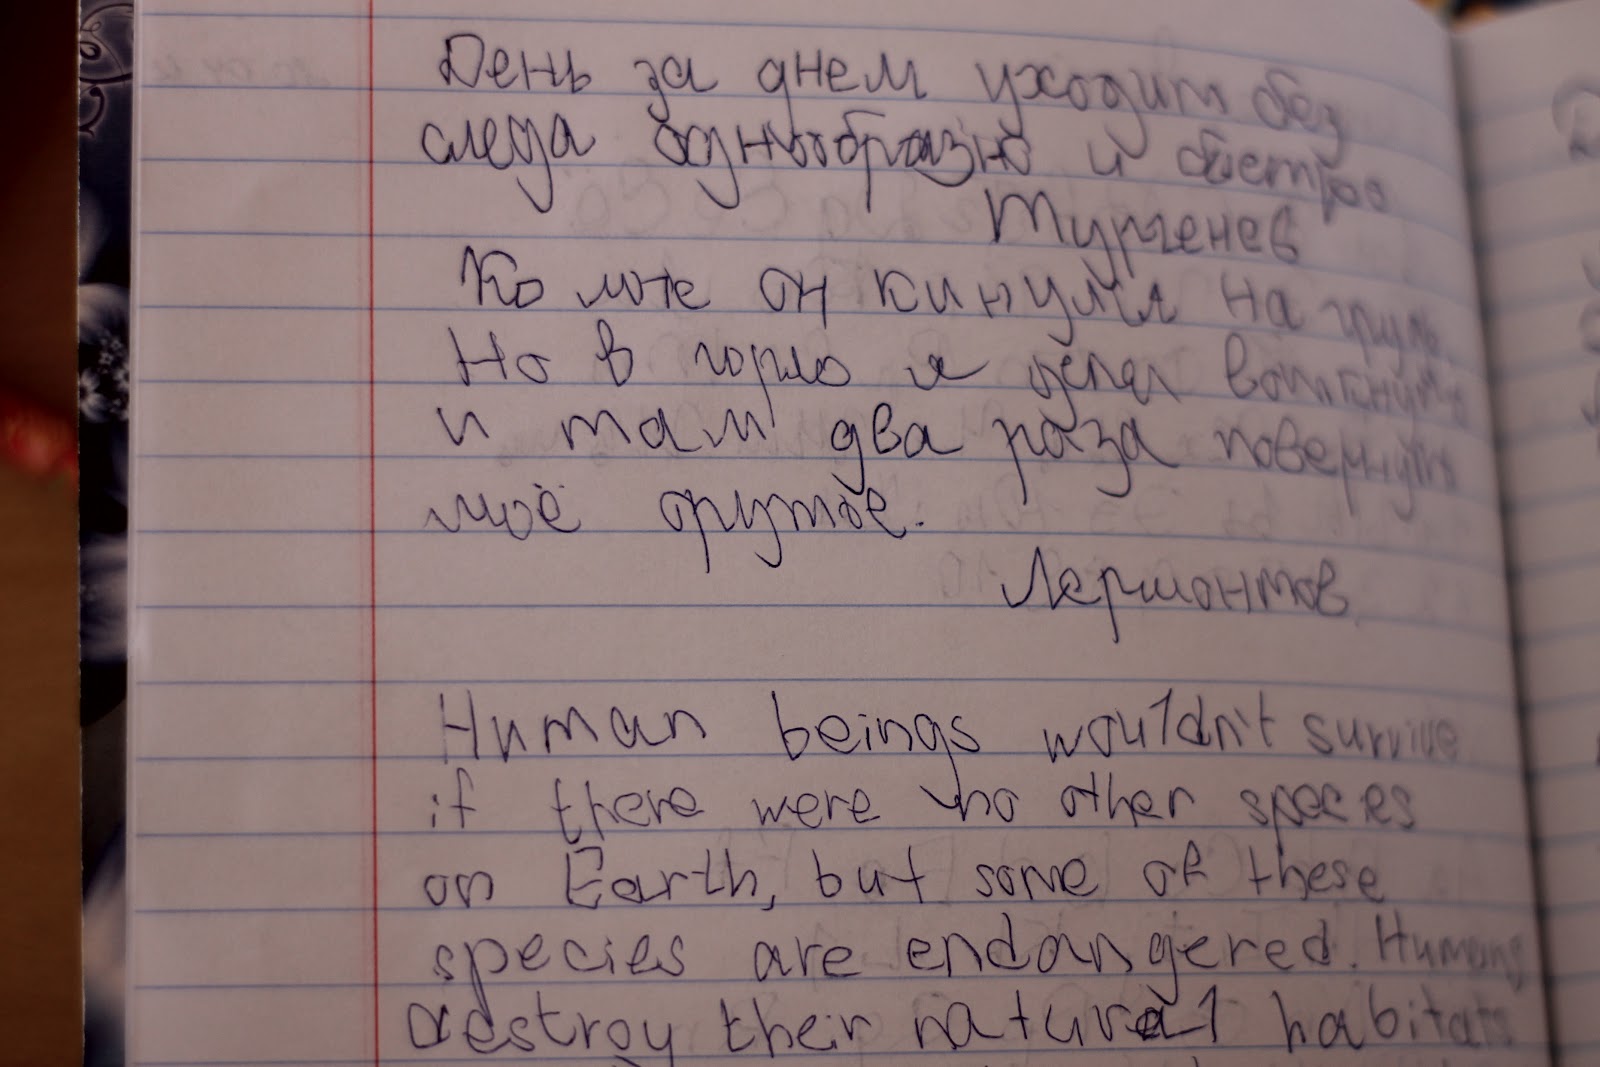 День за днем уходит без
следа однообразно и быстро
Тургенев
Ко мне он кинулся на грудь,
Но в горло я успел воткнуть
и там два раза повернуть
моё оружие.
Лермонтов
Human beings wouldn't survive
if there were no other species
on Earth, but some of these
species are endangered. Humans
destroy their natural habitats